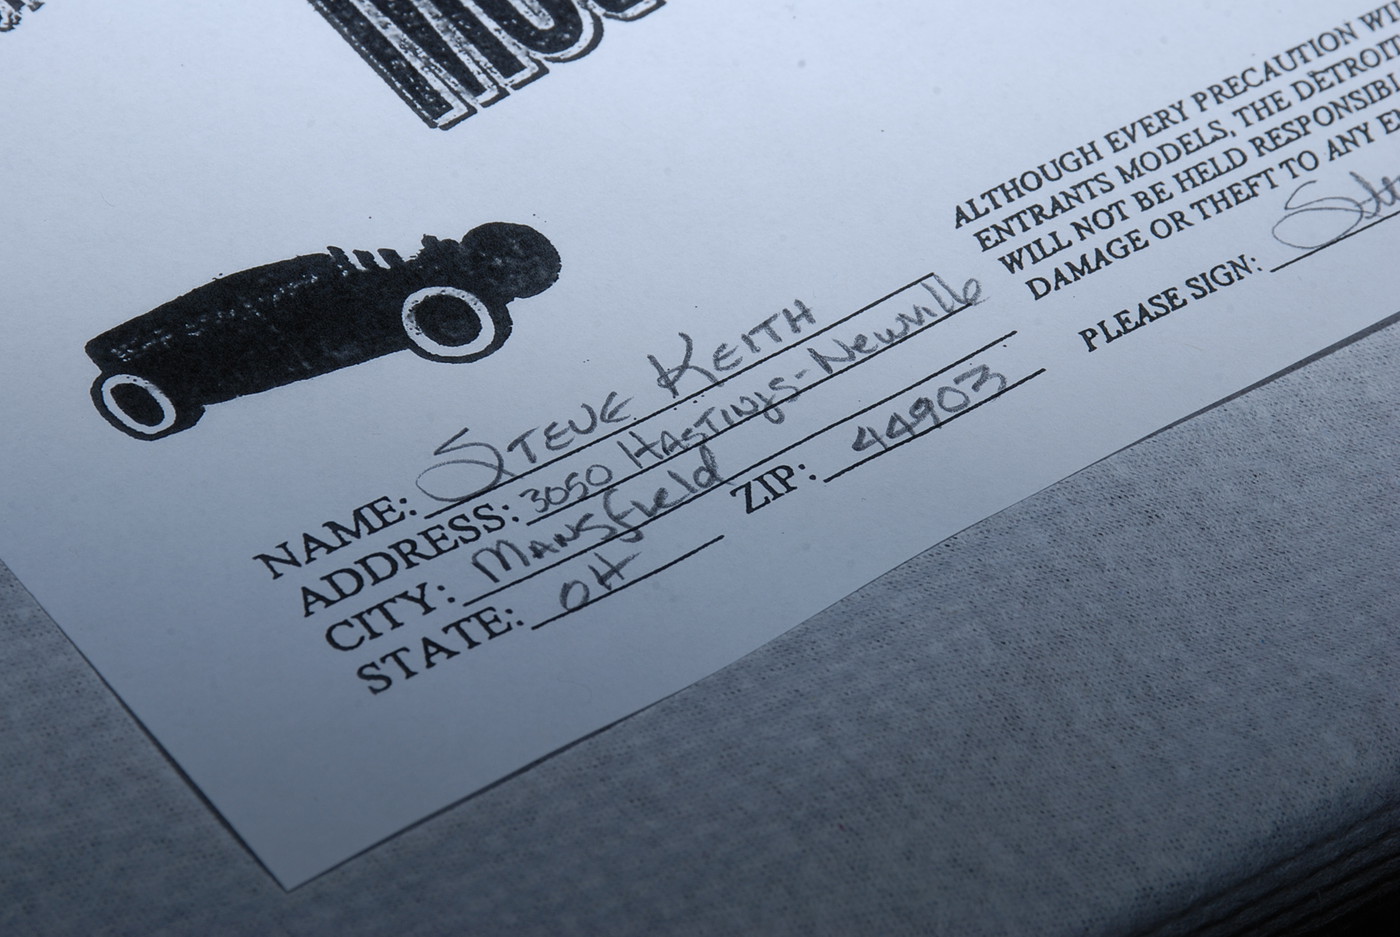 NAME: STEVE KEITH
ADDRESS: 3050 HASTINGS-Newville
CITY: MANSfield
STATE: OH ZIP: 44903
ALTHOUGH EVERY PRECAUTION
ENTRANTS MODELS, THE DETROIT
WILL NOT BE HELD
DAMAGE OR THEFT TO ANY
PLEASE SIGN: